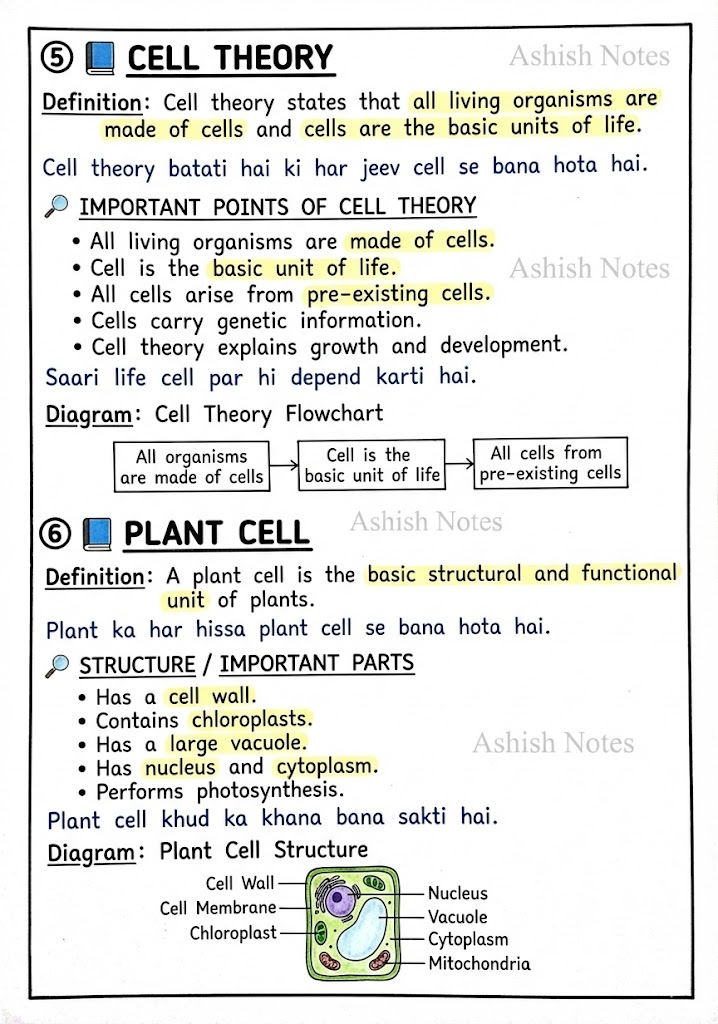 ⑤ CELL THEORY
Ashish Notes
Definition: Cell theory states that all living organisms are
made of cells and cells are the basic units of life.
Cell theory batati hai ki har jeev cell se bana hota hai.
IMPORTANT POINTS OF CELL THEORY
• All living organisms are made of cells.
• Cell is the basic unit of life.
Ashish Notes
• All cells arise from pre-existing cells.
• Cells carry genetic information.
• Cell theory explains growth and development.
Saari life cell par hi depend karti hai.
Diagram: Cell Theory Flowchart
All organisms
are made of cells
Cell is the
basic unit of life
All cells from
pre-existing cells
Ashish Notes
⑥ PLANT CELL
Definition: A plant cell is the basic structural and functional
unit of plants.
Plant ka har hissa plant cell se bana hota hai.
STRUCTURE / IMPORTANT PARTS
• Has a cell wall.
• Contains chloroplasts.
• Has a large vacuole.
Ashish Notes
• Has nucleus and cytoplasm.
• Performs photosynthesis.
Plant cell khud ka khana bana sakti hai.
Diagram: Plant Cell Structure
Cell Wall
Cell Membrane
Chloroplast
Nucleus
Vacuole
Cytoplasm
Mitochondria